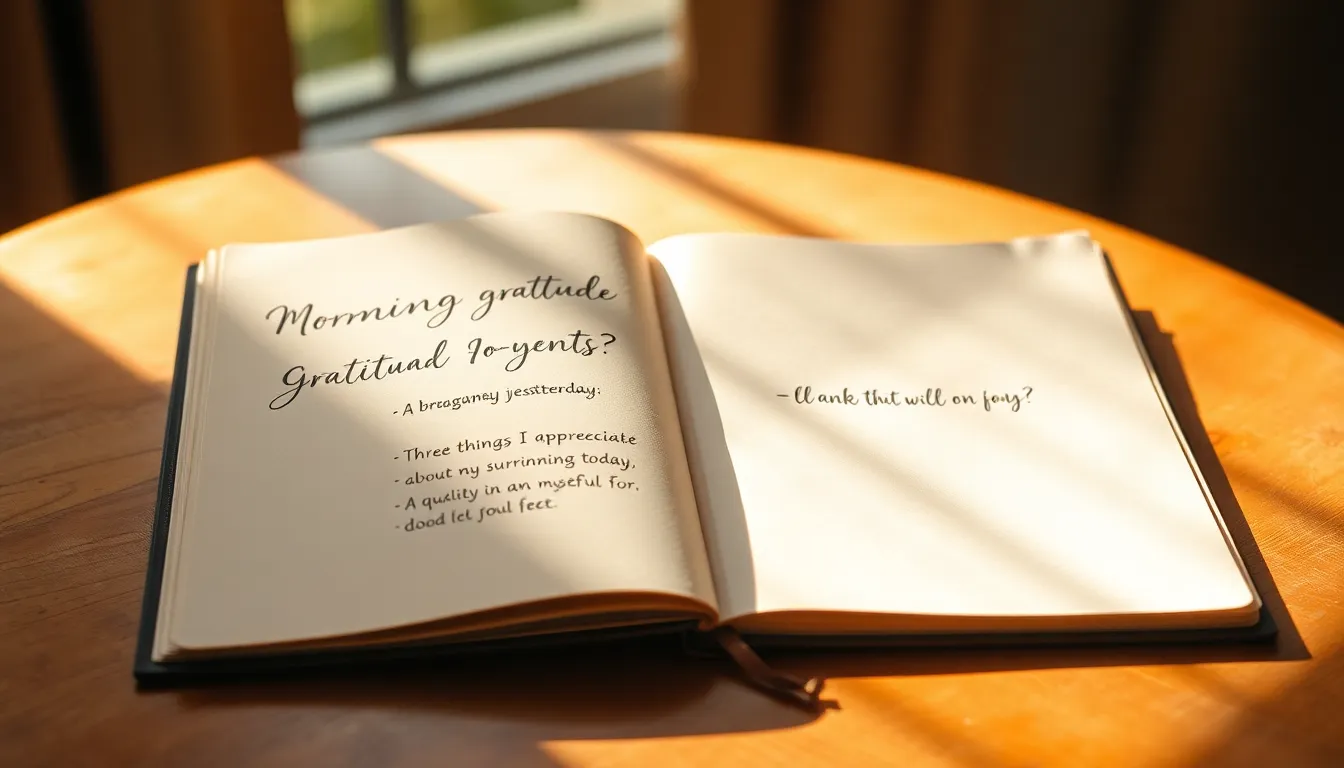 Morning grattude
Gratituad Jo-yents?
- A brcoganey jesstterday:
- Three things I appreciate
- about ny surrinning today,
- A quality in an myseful for.
- dood let foul fect.
- ll ank thut will on fony?